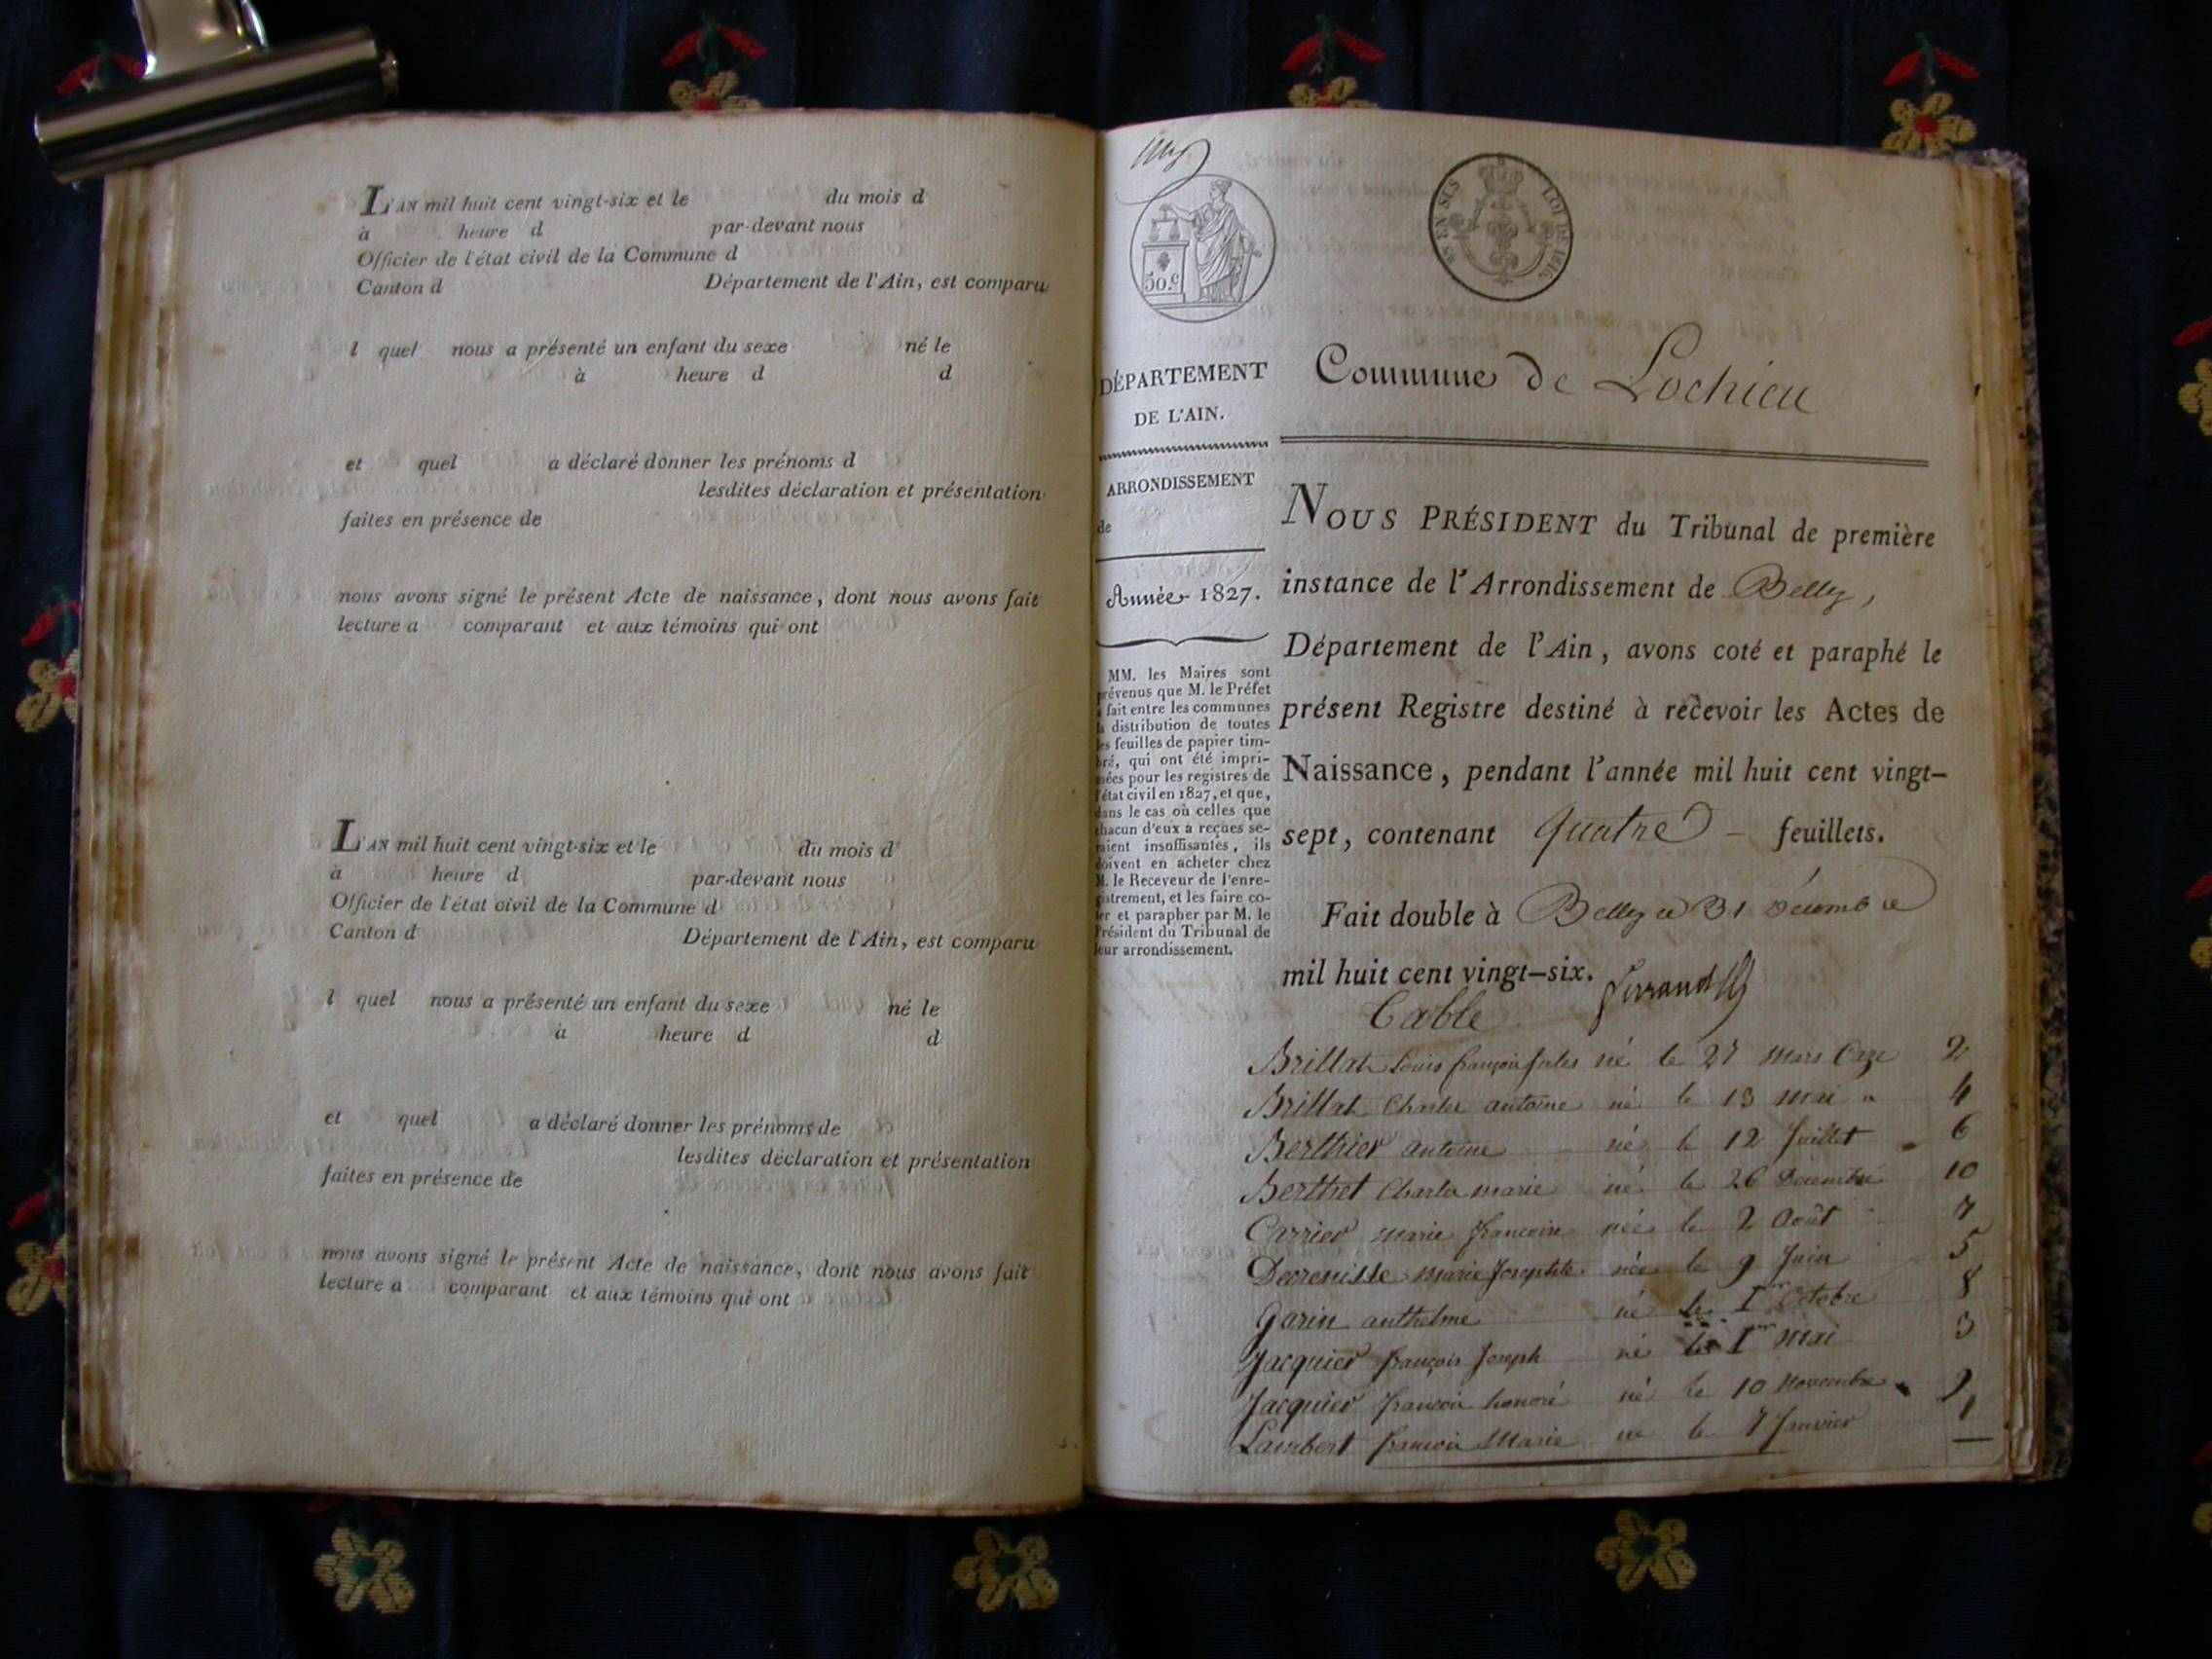 L'AN mil huit cent vingt-six et le du mois d
à heure d par-devant nous
Officier de l'état civil de la Commune d
Canton d Département de l'Ain, est comparu
l quel nous a présenté un enfant du sexe né le
à heure d d
et quel a déclaré donner les prénoms d
lesdites déclaration et présentation
faites en présence de
nous avons signé le présent Acte de naissance, dont nous avons fait
lecture a comparant et aux témoins qui ont
L'AN mil huit cent vingt-six et le du mois d
à heure d par-devant nous
Officier de l'état civil de la Commune d
Canton d Département de l'Ain, est comparu
l quel nous a présenté un enfant du sexe né le
à heure d d
et quel a déclaré donner les prénoms de
lesdites déclaration et présentation
faites en présence de
nous avons signé le présent Acte de naissance, dont nous avons fait
lecture a comparant et aux témoins qui ont
50.c
LOI DE 1816.
DÉPARTEMENT
DE L'AIN.
ARRONDISSEMENT
de
Année 1827.
MM. les Maires sont
prévenus que M. le Préfet
a fait entre les communes
la distribution de toutes
les feuilles de papier tim-
bré, qui ont été impri-
mées pour les registres de
l'état civil en 1827, et que,
dans le cas où celles que
chacun d'eux a reçues se-
raient insuffisantes, ils
doivent en acheter chez
M. le Receveur de l'enre-
gistrement, et les faire co-
ter et parapher par M. le
Président du Tribunal de
leur arrondissement.
Commune de Lochieu
NOUS PRÉSIDENT du Tribunal de première
instance de l'Arrondissement de Belley,
Département de l'Ain, avons coté et paraphé le
présent Registre destiné à recevoir les Actes de
Naissance, pendant l'année mil huit cent vingt-
sept, contenant quatre feuillets.
Fait double à Belley ce 31 Décembre
mil huit cent vingt-six.
Table
Brillat Louis françois Jules né le 27 Mars 2
Brillat Charles antoine né le 13 mai " 4
Berthier antoine né le 12 Juillet 6
Berthet Charles marie né le 26 Décembre 10
Carrier marie francoise née le 2 Août 7
Decrenisse marie Josephte née le 9 Juin 5
Garin anthelme né le 1er Octobre 8
Jacquier françois Joseph né le 1er Mai 3
Jacquier françois honoré né le 10 Novembre 9
Lambert françois Marie né le 7 Janvier 1